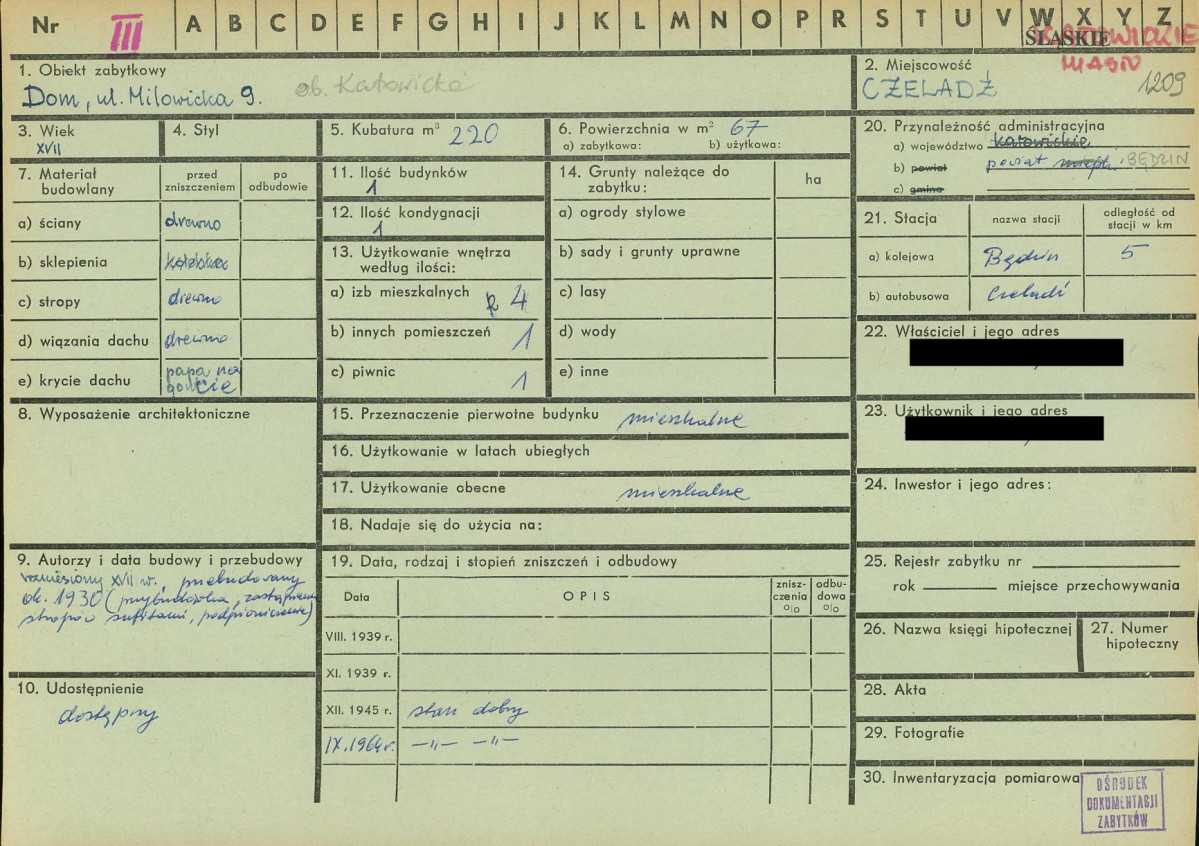 Nr III A B C D E F G H I J K L M N O P R S T U V W X Y Z
ŚLĄSKIE KATOWICKIE
MIASTO
1. Obiekt zabytkowy
Dom, ul. Milowicka 9. ob. Katowicka
2. Miejscowość
CZELADŹ 1209
3. Wiek
XVII
4. Styl
5. Kubatura m³ 220
6. Powierzchnia w m² 67
a) zabytkowa: b) użytkowa:
7. Materiał budowlany
przed zniszczeniem
po odbudowie
a) ściany drewno
b) sklepienia
c) stropy drewno
d) wiązania dachu drewno
e) krycie dachu papa na goncie
8. Wyposażenie architektoniczne
9. Autorzy i data budowy i przebudowy
wzniesiony XVII w., przebudowany
ok. 1930 (przybudówka, zastąpienie
stropów sufitami, podpiwniczenie)
10. Udostępnienie
dostępny
11. Ilość budynków
1
12. Ilość kondygnacji
1
13. Użytkowanie wnętrza
według ilości:
a) izb mieszkalnych 4
b) innych pomieszczeń 1
c) piwnic 1
14. Grunty należące do
zabytku:
ha
a) ogrody stylowe
b) sady i grunty uprawne
c) lasy
d) wody
e) inne
15. Przeznaczenie pierwotne budynku mieszkalne
16. Użytkowanie w latach ubiegłych
17. Użytkowanie obecne mieszkalne
18. Nadaje się do użycia na:
19. Data, rodzaj i stopień zniszczeń i odbudowy
Data
OPIS
znisz-
czenia
o/o
odbu-
dowa
o/o
VIII. 1939 r.
XI. 1939 r.
XII. 1945 r. stan dobry
IX. 1964 r. —"— —"—
20. Przynależność administracyjna
a) województwo katowickie
b) powiat powiat BĘDZIN
c) gmina
21. Stacja
nazwa stacji
odległość od
stacji w km
a) kolejowa Będzin 5
b) autobusowa Czeladź
22. Właściciel i jego adres
23. Użytkownik i jego adres
24. Inwestor i jego adres:
25. Rejestr zabytku nr
rok miejsce przechowywania
26. Nazwa księgi hipotecznej
27. Numer
hipoteczny
28. Akta
29. Fotografie
30. Inwentaryzacja pomiarowa
OŚRODEK
DOKUMENTACJI
ZABYTKÓW